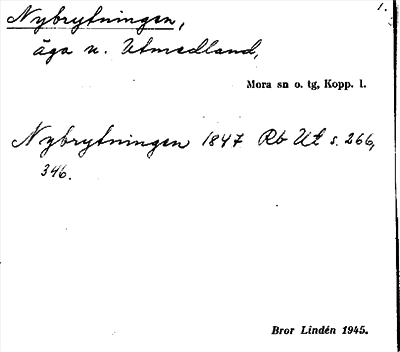 1.
Nybrytningen,
äga n. Utmedland,
Mora sn o. tg, Kopp. l.
Nybrytningen 1847 Rb Ut s. 266,
346.
Bror Lindén 1945.